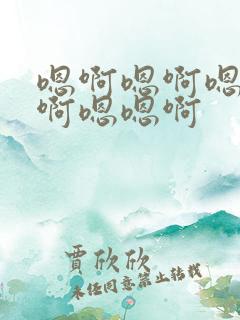 嗯啊嗯啊嗯
啊嗯嗯啊
贾欣欣
未经同意禁止转载